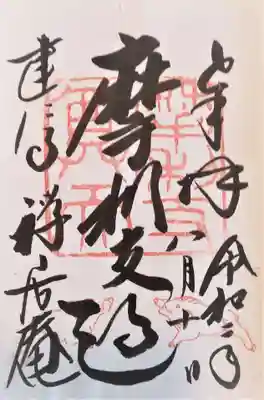 奉拝 令和二年
八月十日
摩利支天
建仁寺 禅居庵